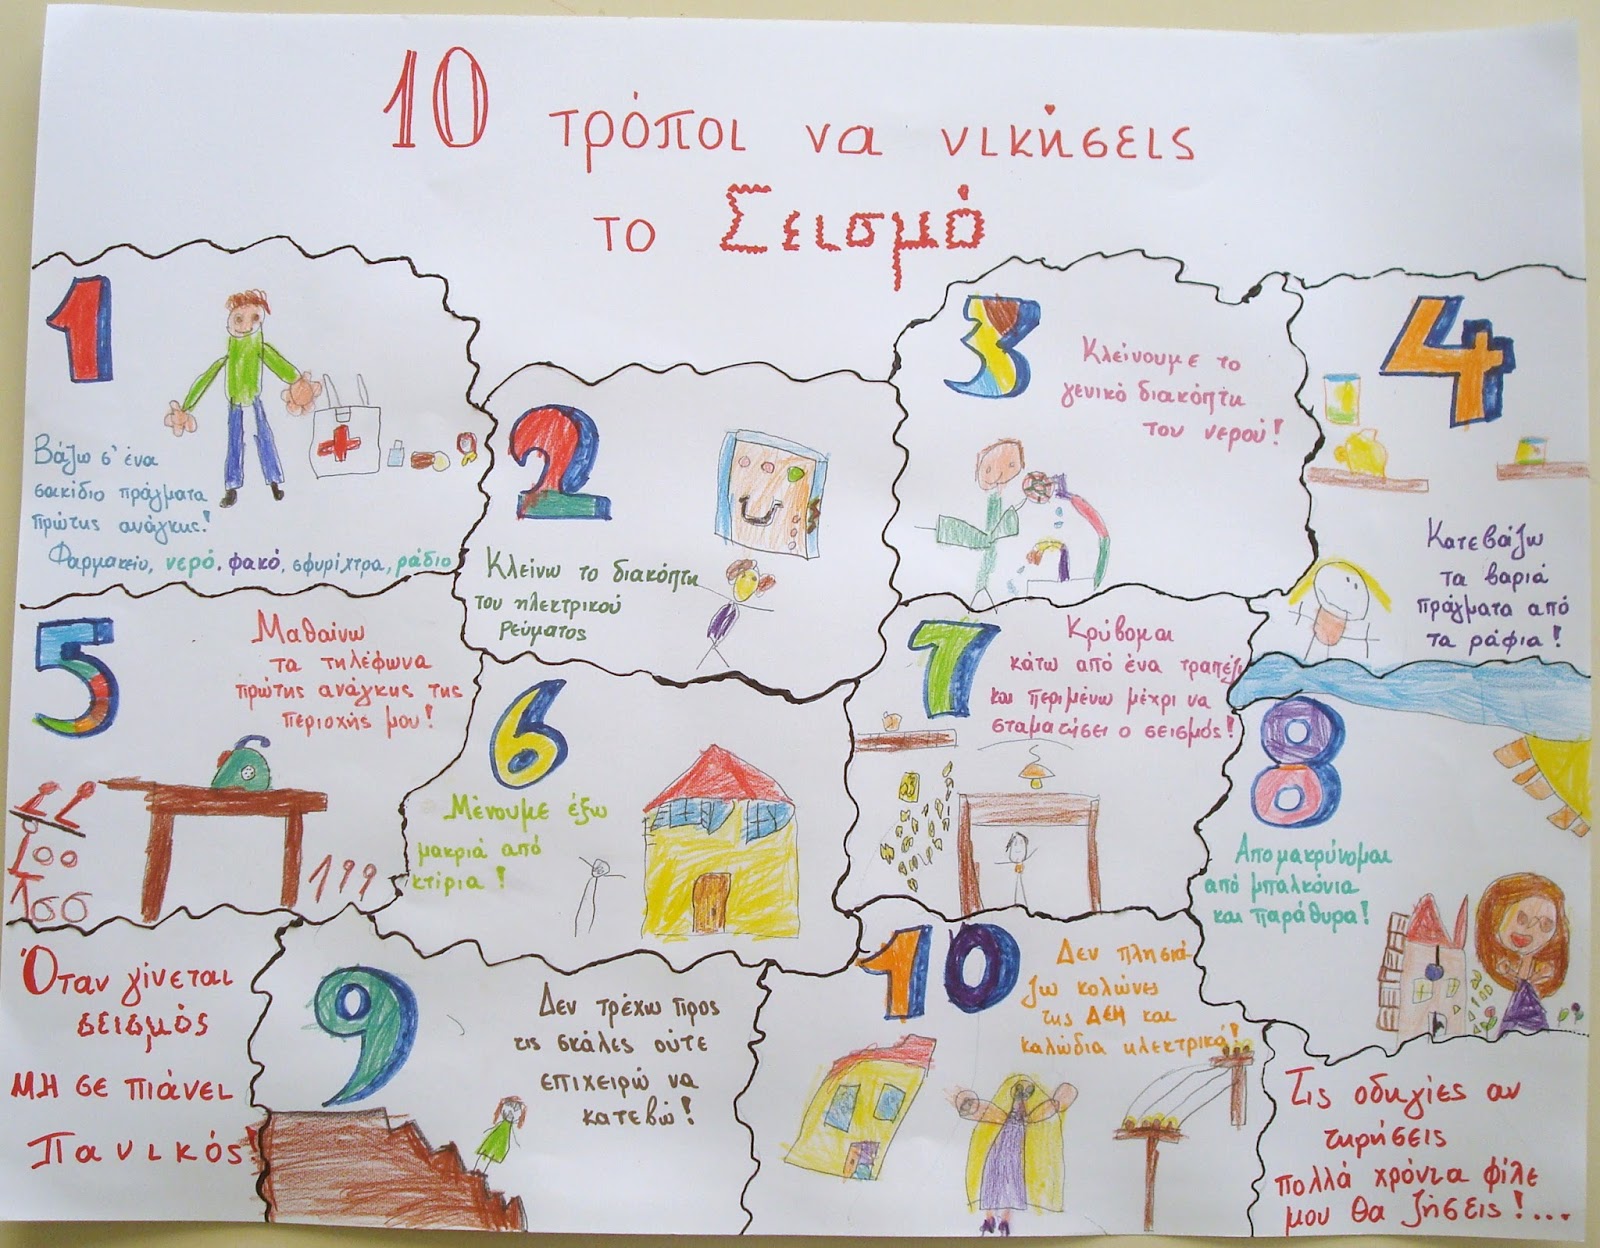 10 τρόποι να νικήσεις
το Σεισμό
1
Βάζω σ' ένα
σακίδιο πράγματα
πρώτης ανάγκης!
Φαρμακείο, νερό, φακό, σφυρίχτρα, ράδιο
2
Κλείνω το διακόπτη
του ηλεκτρικού
ρεύματος
3
Κλείνουμε το
γενικό διακόπτη
του νερού!
4
Κατεβάζω
τα βαριά
πράγματα από
τα ράφια!
5
Μαθαίνω
τα τηλέφωνα
πρώτης ανάγκης της
περιοχής μου!
100
166
199
6
Μένουμε έξω
μακριά από
κτίρια!
7
Κρύβομαι
κάτω από ένα τραπέζι
και περιμένω μέχρι να
σταματήσει ο σεισμός!
8
Απομακρύνομαι
από μπαλκόνια
και παράθυρα!
Όταν γίνεται
σεισμός
μη σε πιάνει
πανικός!
9
Δεν τρέχω προς
τις σκάλες ούτε
επιχειρώ να
κατεβώ!
10
Δεν πλησιά
ζω κολώνες
της ΔΕΗ και
καλώδια ηλεκτρικά!
Τις οδηγίες αν
τηρήσεις
πολλά χρόνια φίλε
μου θα ζήσεις!...